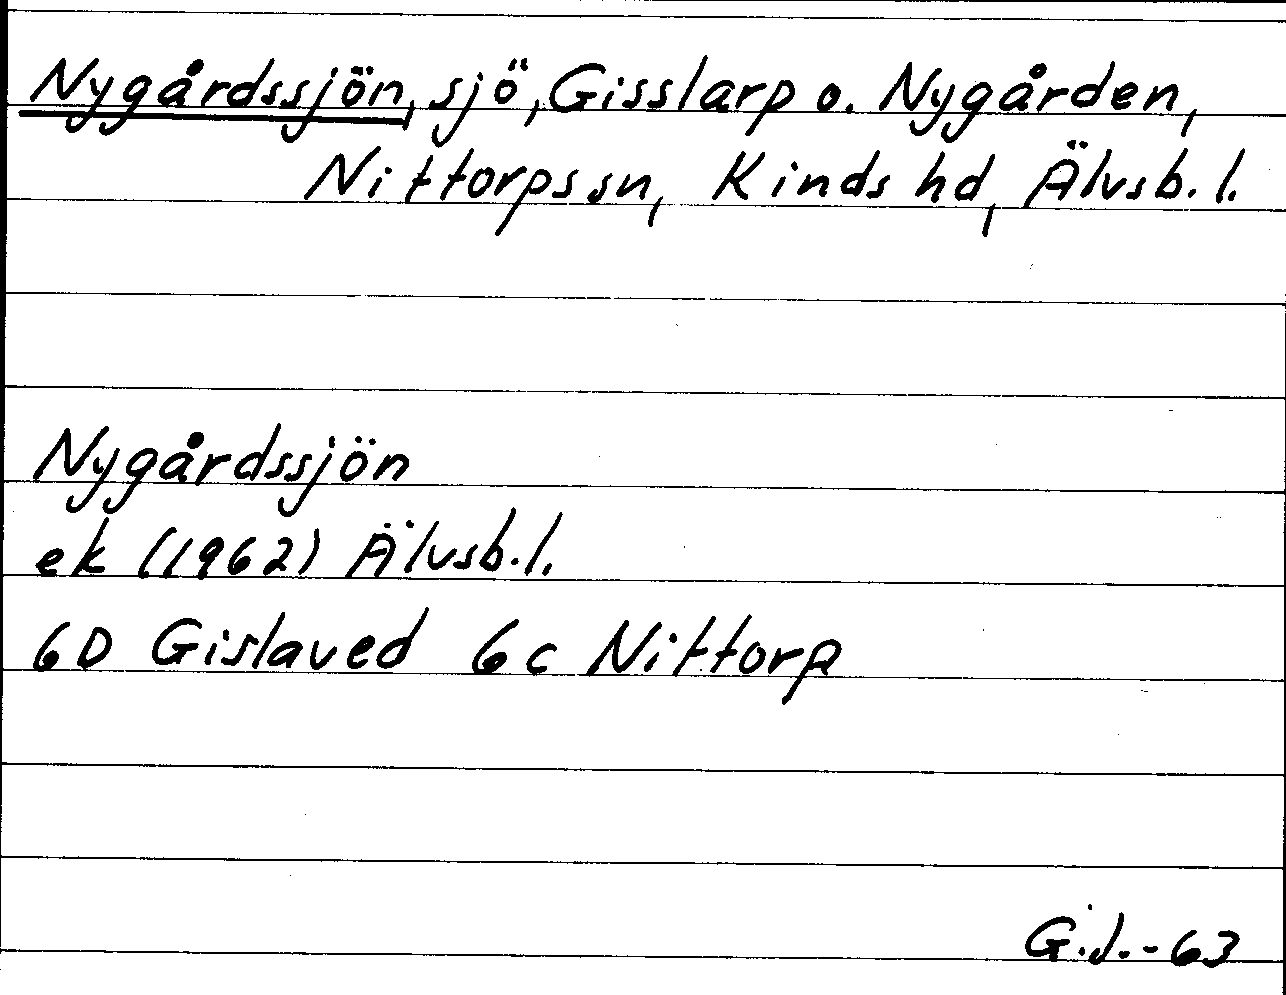 Nygårdssjön, sjö, Gisslarp o. Nygården,
Nittorps sn, Kinds hd, Älvsb. l.
Nygårdssjön
ek (1962) Älvsb. l.
6D Gislaved 6c Nittorp
G.J.-63